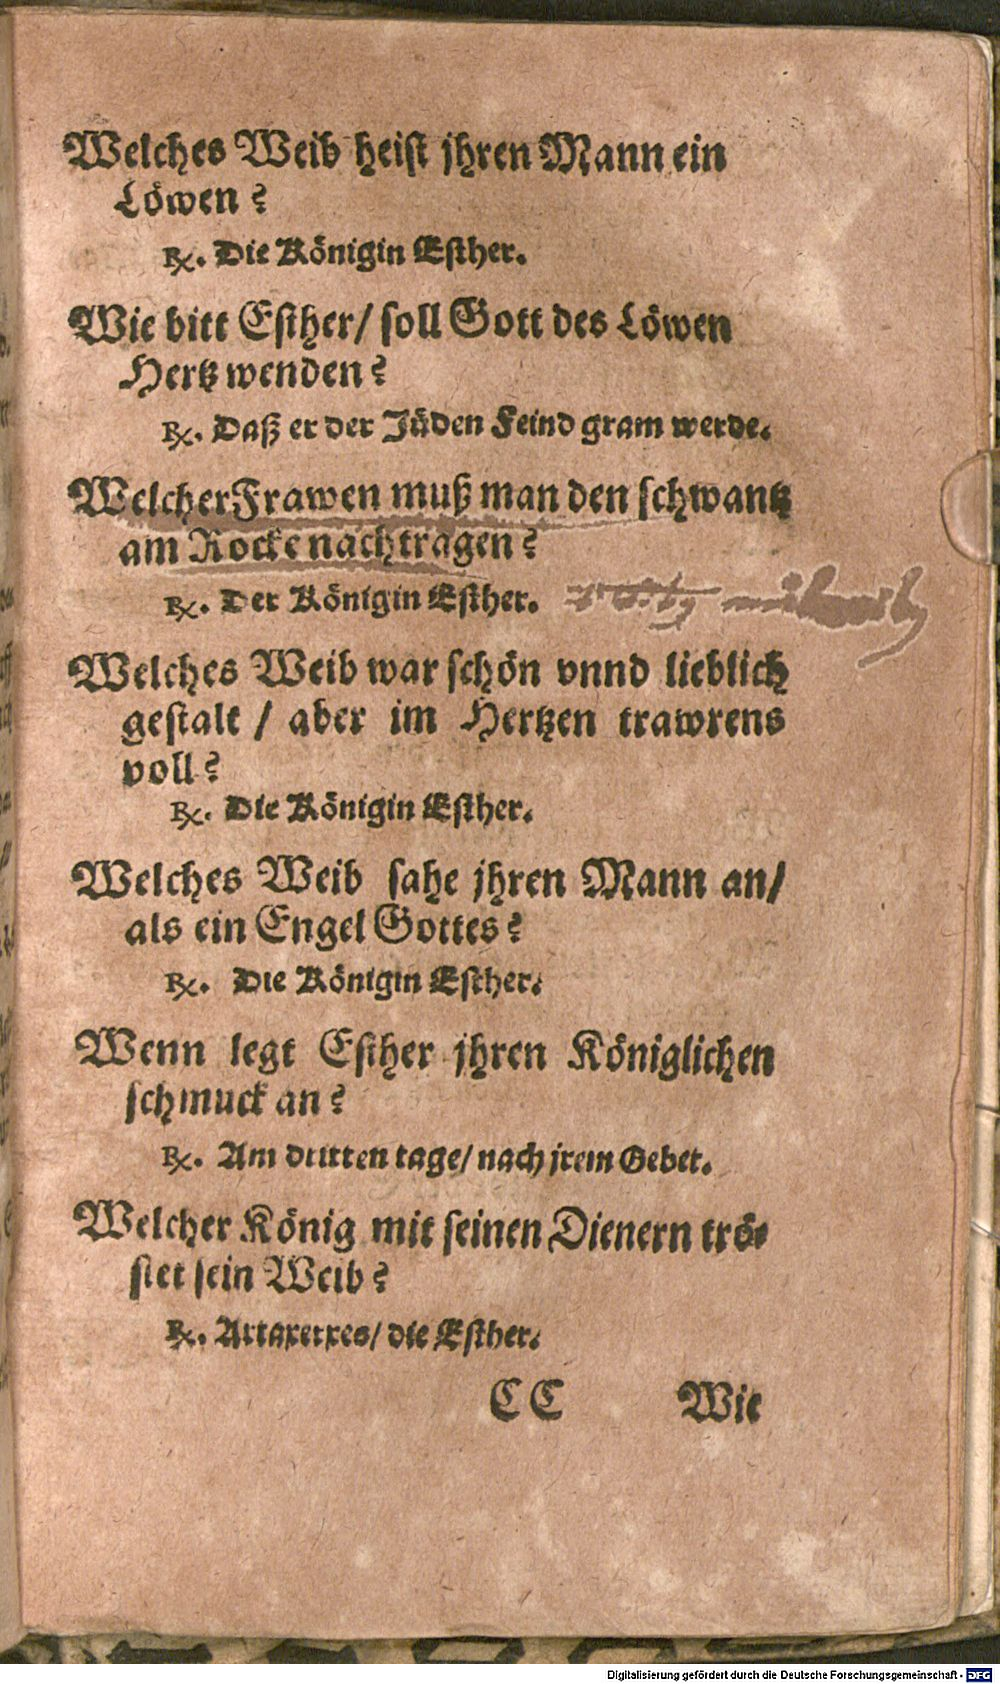 Welches Weib heist jhren Mann ein
Löwen?
℞. Die Königin Esther.
Wie bitt Esther/ soll Gott des Löwen
Hertz wenden?
℞. Daß er der Jüden Feind gram werde.
Welcher Frawen muß man den schwantz
am Rocke nachtragen?
℞. Der Königin Esther.
Welches Weib war schön vnnd lieblich
gestalt / aber im Hertzen trawrens
voll?
℞. Die Königin Esther.
Welches Weib sahe jhren Mann an/
als ein Engel Gottes?
℞. Die Königin Esther.
Wenn legt Esther jhren Königlichen
schmuck an?
℞. Am dritten tage/ nach jrem Gebet.
Welcher König mit seinen Dienern trö-
stet sein Weib?
℞. Artaxerxes/ die Esther.
CC Wie
Digitalisierung gefördert durch die Deutsche Forschungsgemeinschaft - DFG